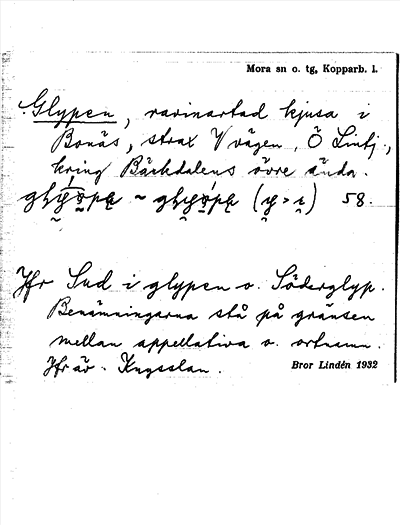 Mora sn o. tg, Kopparb. l.
Glypen, ravinartad kjusa i
Bonäs, strax V vägen, Ö Lintj.,
kring Bäckdalens övre ända.
58.
Jfr Sud i glypen o. Söderglyp.
Benämningarna stå på gränsen
mellan appellativa o. ortnamn.
Jfr äv. Knysslan.
Bror Lindén 1932